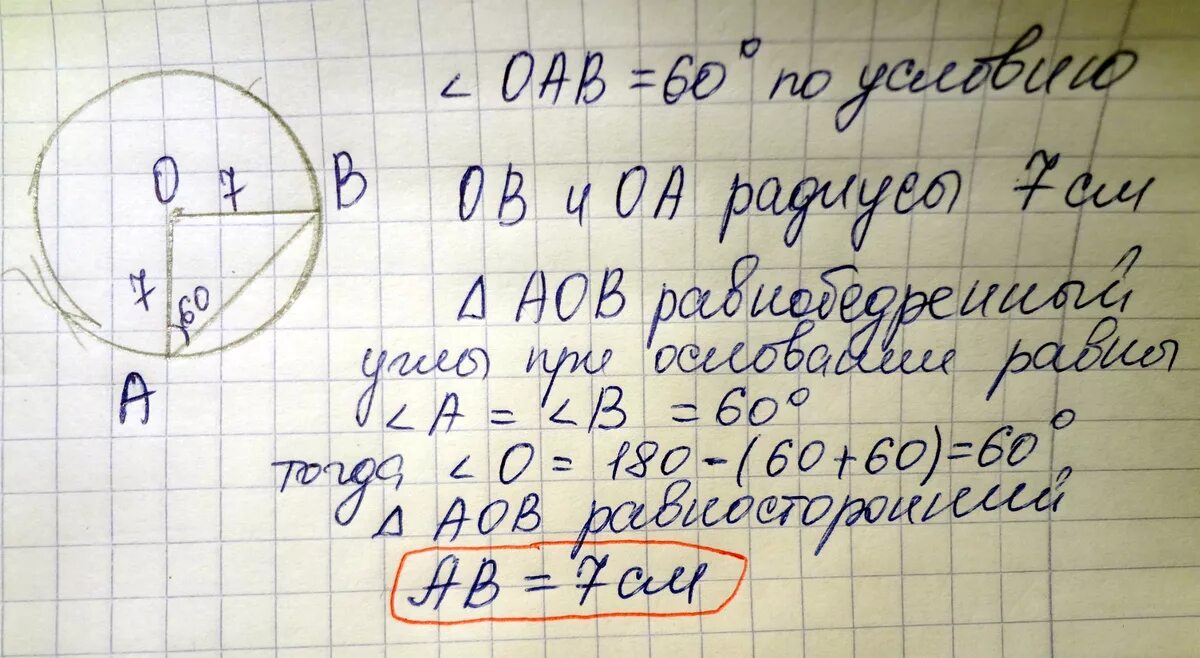 ∠ OAB = 60° по условию
O 7 B
OB и OA радиусы 7 см
7 60
Δ AOB равнобедренный
углы при основании равны
A
∠ A = ∠ B = 60°
тогда ∠ O = 180 - (60 + 60) = 60°
Δ AOB равносторонний
AB = 7 см